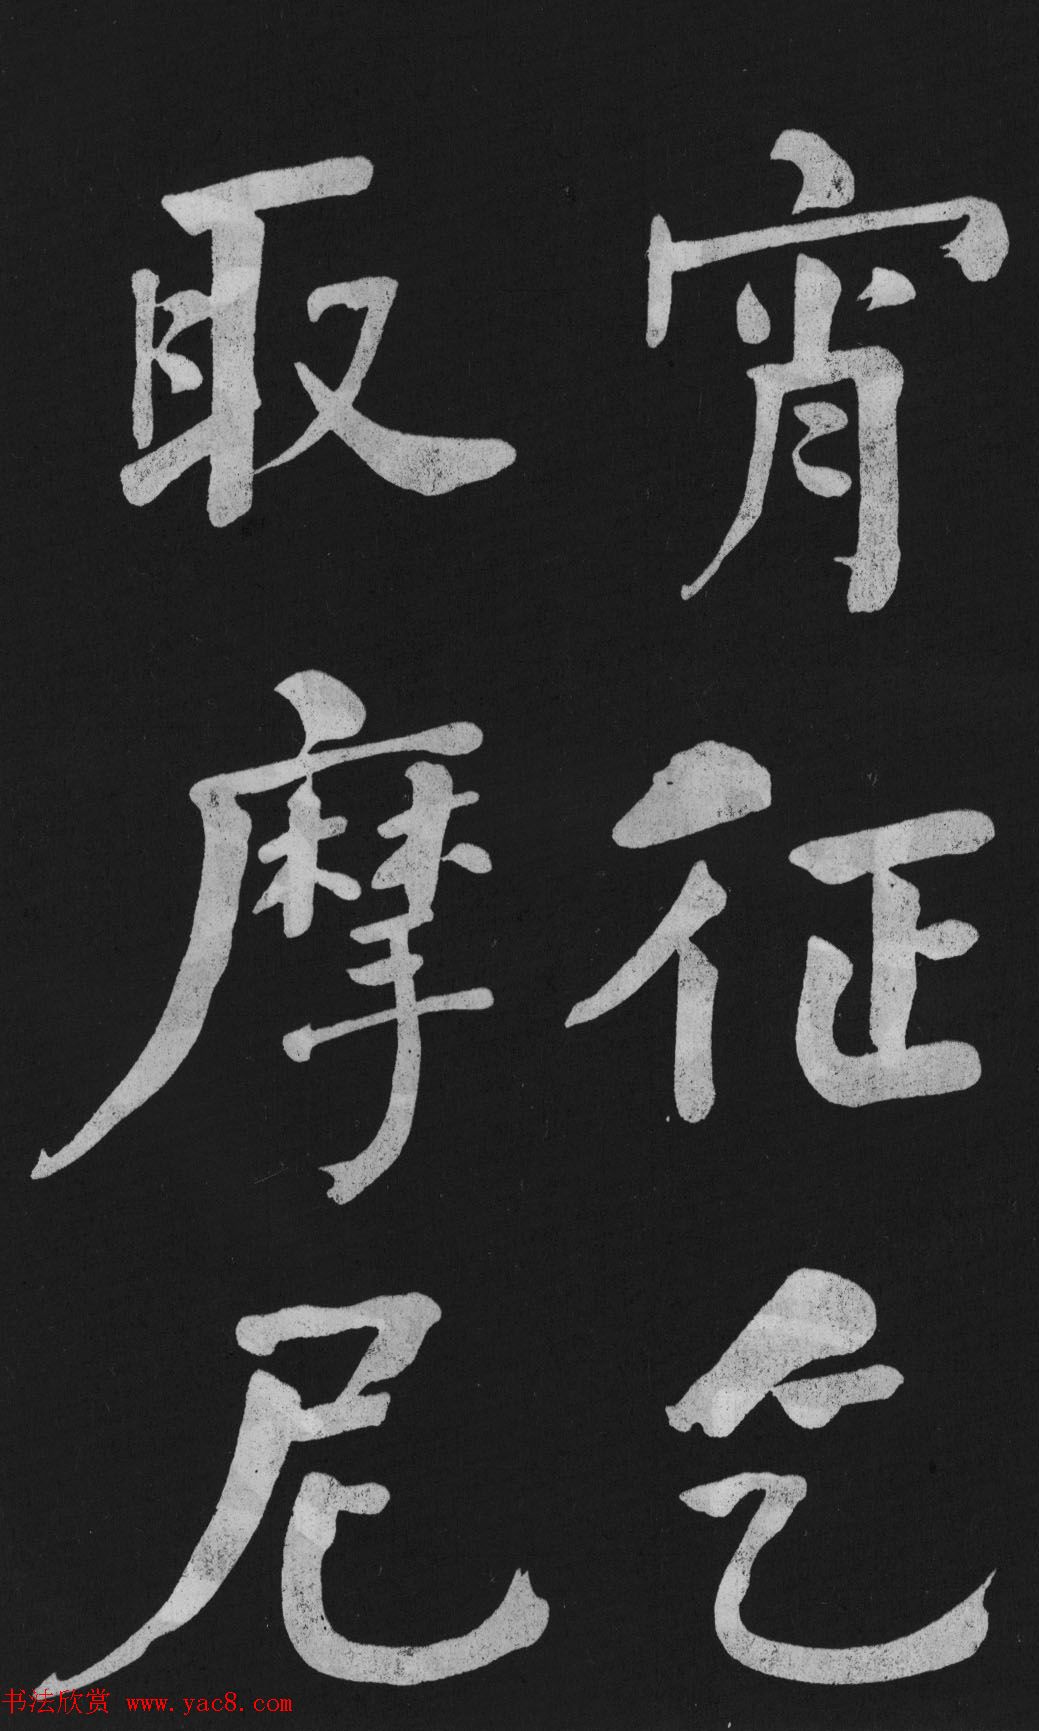 宵征乞
取摩尼
书法欣赏 www.yac8.com